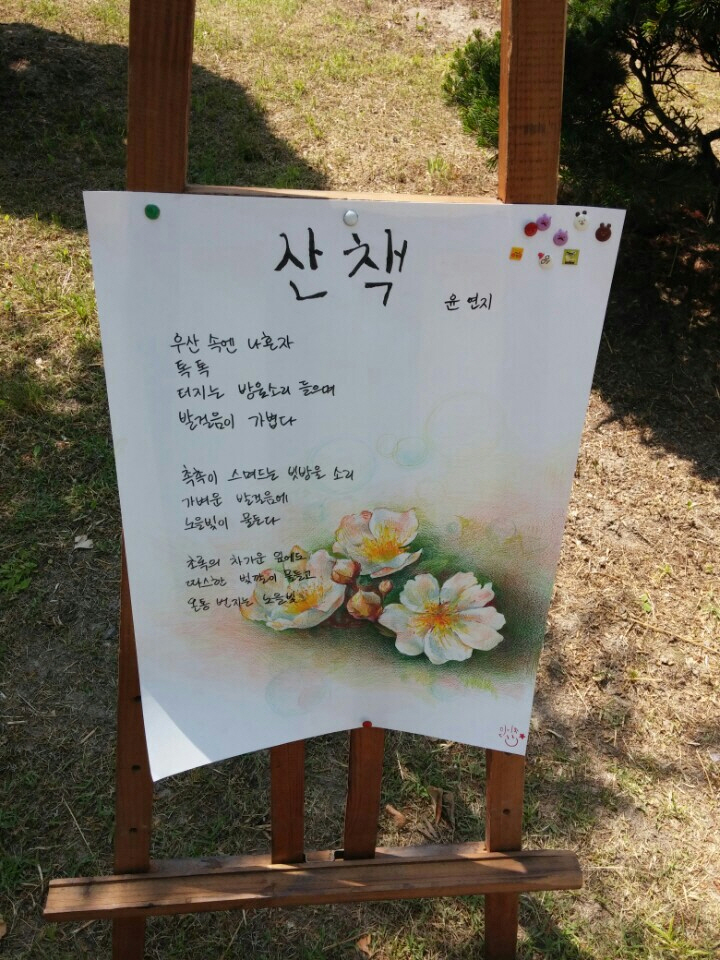 산책
윤연지
우산 속엔 나혼자
톡톡
터지는 방울소리 들으며
발걸음이 가볍다
촉촉이 스며드는 빗방울 소리
가벼운 발걸음에
노을빛이 물든다
초록의 차가운 잎에도
따스한 빛깔이 물들고
온통 번지는 노을빛